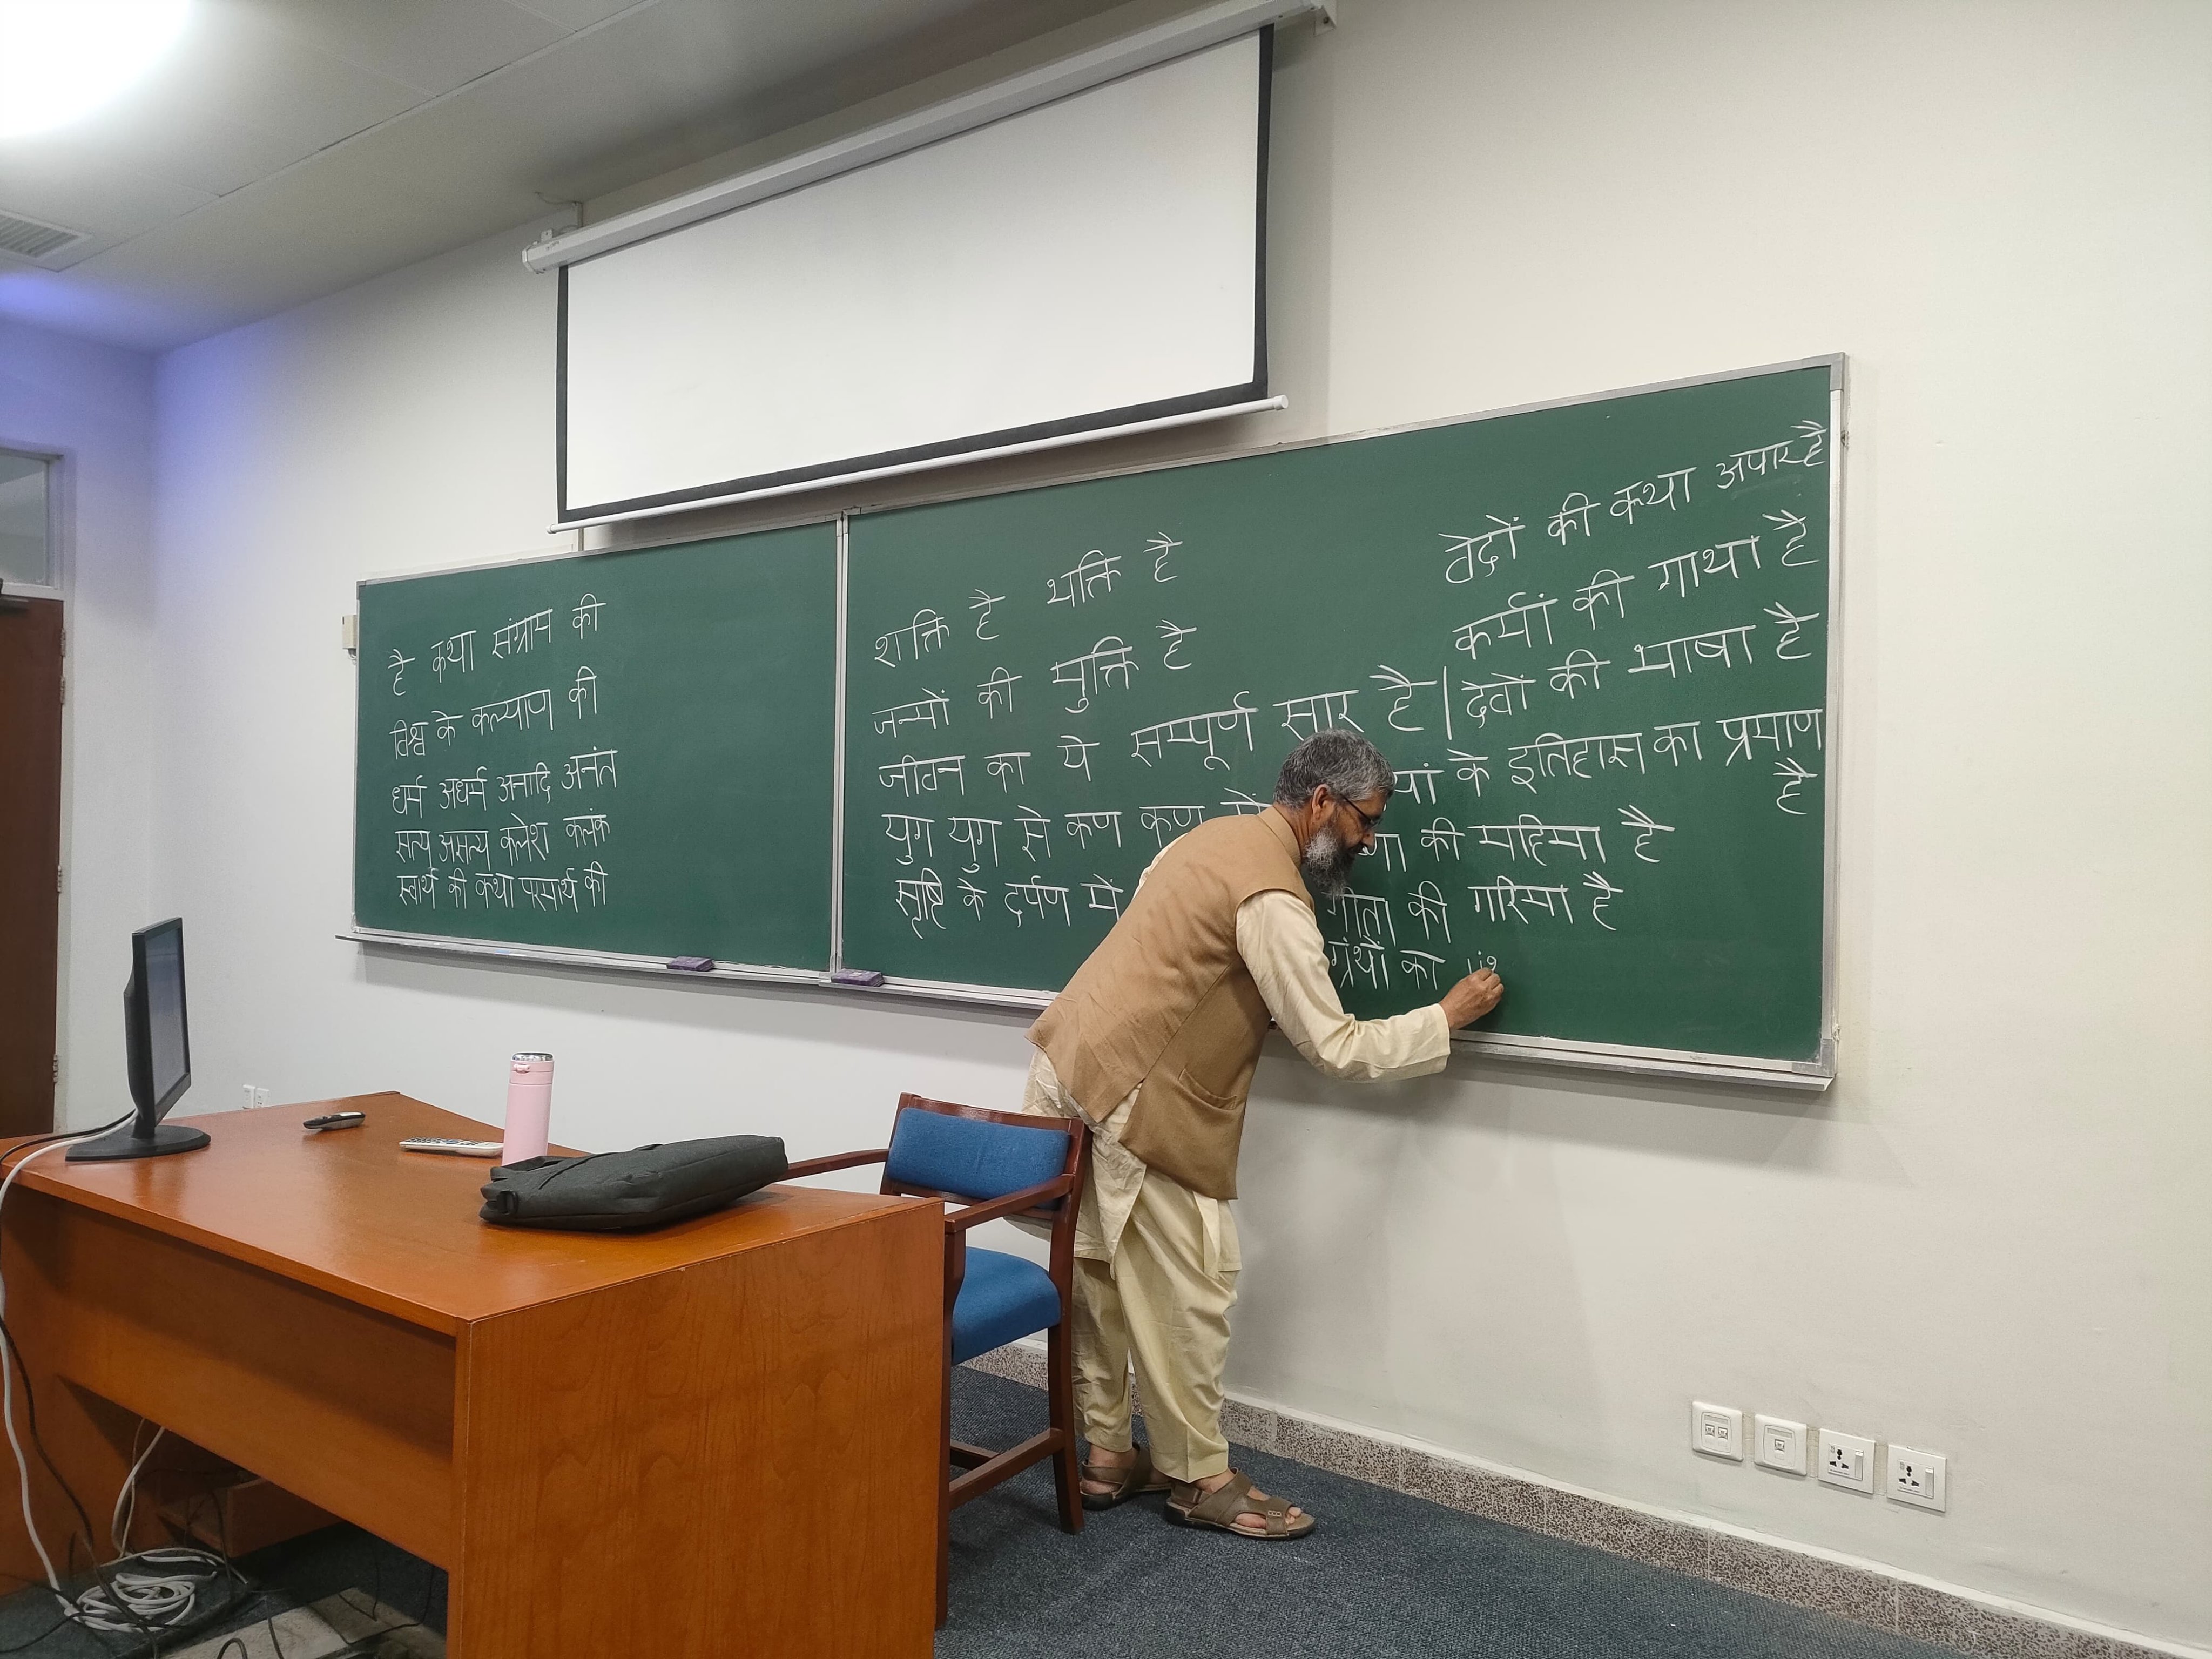 है कथा संग्राम की
विश्व के कल्याण की
धर्म अधर्म अनादि अनंत
सत्य असत्य कलेश कलंक
स्वार्थ की कथा परमार्थ की
शक्ति है भक्ति है
जन्मों की मुक्ति है
जीवन का ये सम्पूर्ण सार है
युग युग से कण कण में
सृष्टि के दर्पण में
वेदों की कथा अपार है
कर्मों की गाथा है
देवों की भाषा है
के इतिहास का प्रमाण
है
की महिमा है
गीता की गरिमा है
ग्रंथों का